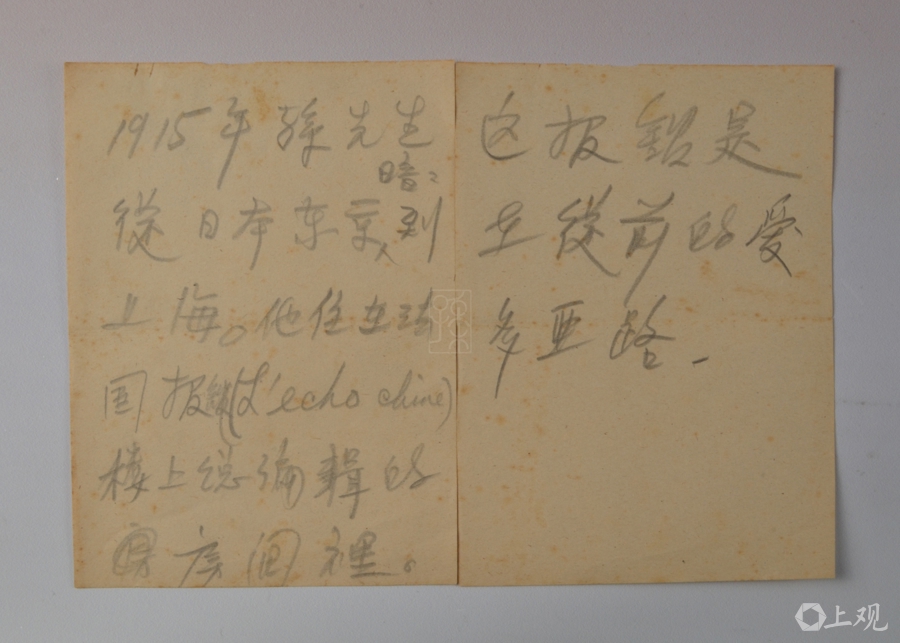 1915年孫先生
暗暗
從日本东京到
上海。他住在法
国报館(L'echo chine)
楼上总编輯的
房间裡。
这报館是
在從前的爱
多亚路.
上观